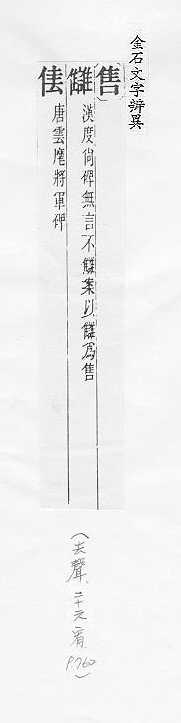 金石文字辨異
售
漢度尚碑無言不讎案以讎為售
唐雲麾將軍碑
(去聲、二十六宥、P.760)